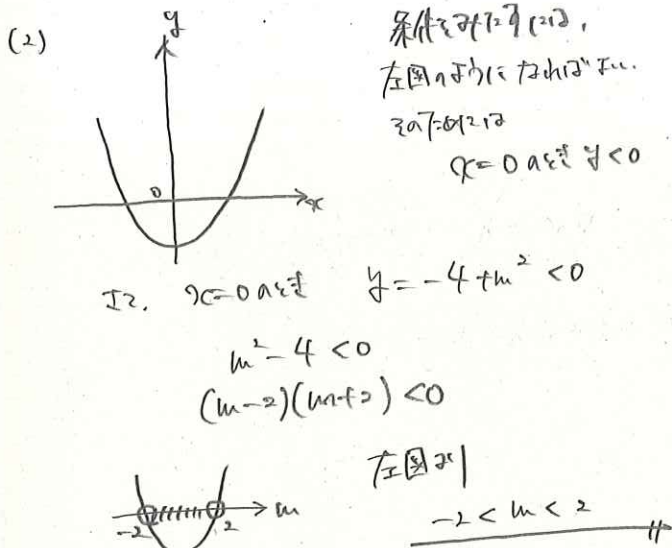 (2)
y
0
x
条件をみたすには、
左図のようになればよい.
そのためには
x=0のとき y<0
よって, x=0のとき y=-4+m²<0
m²-4<0
(m-2)(m+2)<0
-2 2 m
左図より
-2<m<2